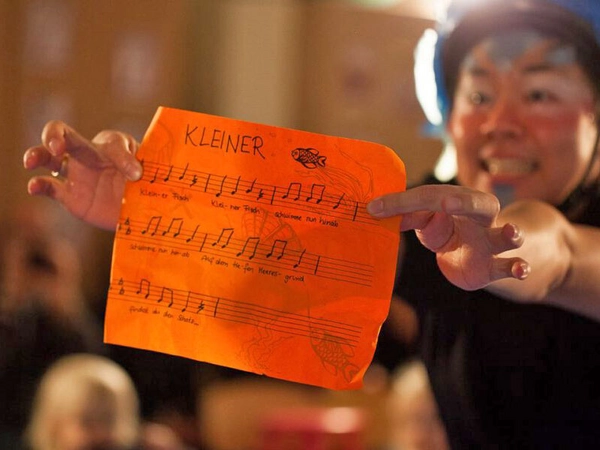 KLEINER
Klein-er Fisch Klei-ner Fisch schwimme nun hinab
schwimme nun hinab Auf dem tie-fen Meeres-grund
findest du den Schatz...